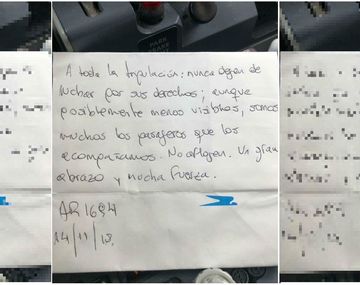 A toda la tripulación: nunca dejen de
luchar por sus derechos; aunque
posiblemente menos visibles, somos
muchos los pasajeros que los
acompañamos. No aflojen. Un gran
abrazo y mucha fuerza.
AR 1694
14/11/18.